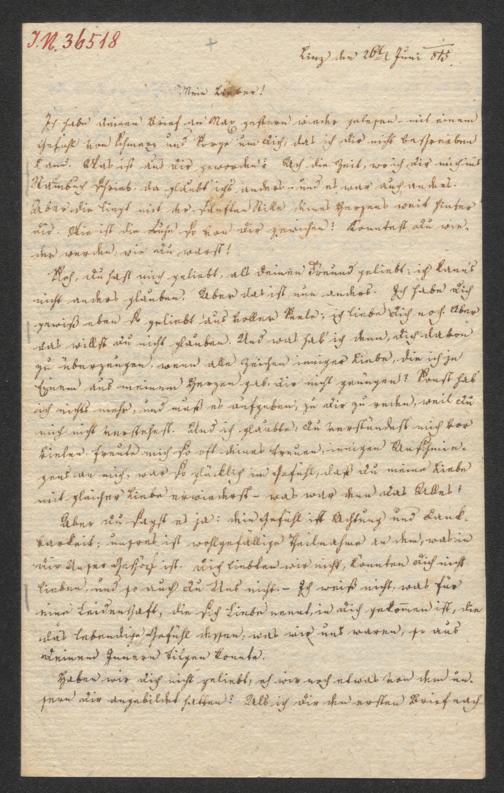 J.N. 36518
Linz den 26t Juni 815.
Mein Lieber!
Ich habe deinen Brief an Max gestern wieder gelesen mit einem
Gefühl von Schmerz und Sorge um dich, das ich dir nicht beschreiben
kann. Was ist aus dir geworden? Ach die Zeit, wo ich dir nach
Stambuch schrieb, da glaubt ich's anders und es war auch anders.
Aber die liegt mit der sanften Stille deines Herzens weit hinter
uns. Wie ist die Ruhe so von dir gewichen! Könntest du wie-
der werden, wie du warst!
Ach, du hast mich geliebt, als deinen Freund geliebt; ich kann's
nicht anders glauben. Aber das ist nun anders. Ich habe dich
gewiß eben so geliebt aus voller Seele; ich liebe dich noch. Aber
das willst du nicht glauben. Und was hab ich denn, dich davon
zu überzeugen, wenn alle Zeichen inniger Liebe, die ich zu
aus meinem Herzen gab, dir nicht genügen? Sonst hab
ich nichts mehr, und muß es aufgeben, zu dir zu reden, weil du
mich nicht verstehest. Und ich glaubte, du verstündest mich vor
vielen, freute mich so oft deines treuen, innigen Anschmie-
gens an mich, war so glücklich im Gefühl, daß du meine Liebe
mit gleicher Liebe erwiederst – was war denn das Alles!
Aber du sagst es ja: dein Gefühl ist Achtung und Dank-
barkeit; unsres ist wohlgefällige Theilnahme an dem, was in
dir Unser Geschöpf ist. Dich liebten wir nicht, konnten dich nicht
lieben, und so auch du Uns nicht. – Ich weiß nicht, was für
eine Leidenschaft, die sich Liebe nennt, in dich gekommen ist, die
das lebendige Gefühl dessen, was wir uns waren, so aus
deinem Innern tilgen konnte.
Haben wir dich nicht geliebt, eh wir noch etwas von dem un-
sern dir angebildet hatten? Als ich dir den ersten Brief nach